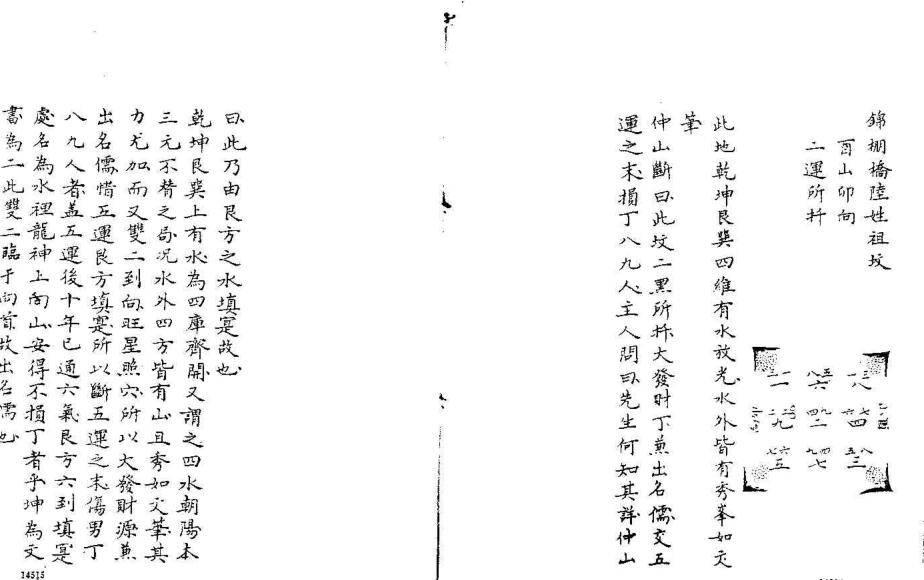 錦棚橋陸姓祖坟
酉山卯向
二運所扦
此地乾坤艮巽四維有水放光水外皆有秀峯如文
筆
仲山斷曰此坟二黑所扦大發財丁蒸出名儒交五
運之末損丁八九人主人問曰先生何知其詳仲山
曰此乃由艮方之水填寔故也
乾坤艮巽上有水為四庫齊開又謂之四水朝陽本
三元不替之局况水外四方皆有山且秀如文筆其
力尤加而又雙二到向旺星照穴所以大發財源蒸
出名儒惜五運艮方填寔所以斷五運之末傷男丁
八九人者盖五運後十年已通六氣艮方六到填寔
處名為水裡龍神上向山安得不損丁者乎坤為文
書為二此雙二臨于向首故出名儒也
14515